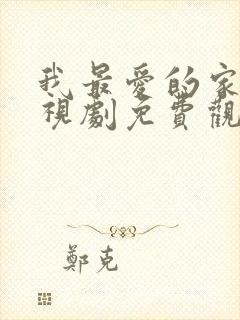 我最愛的家
視劇免費觀
鄭克